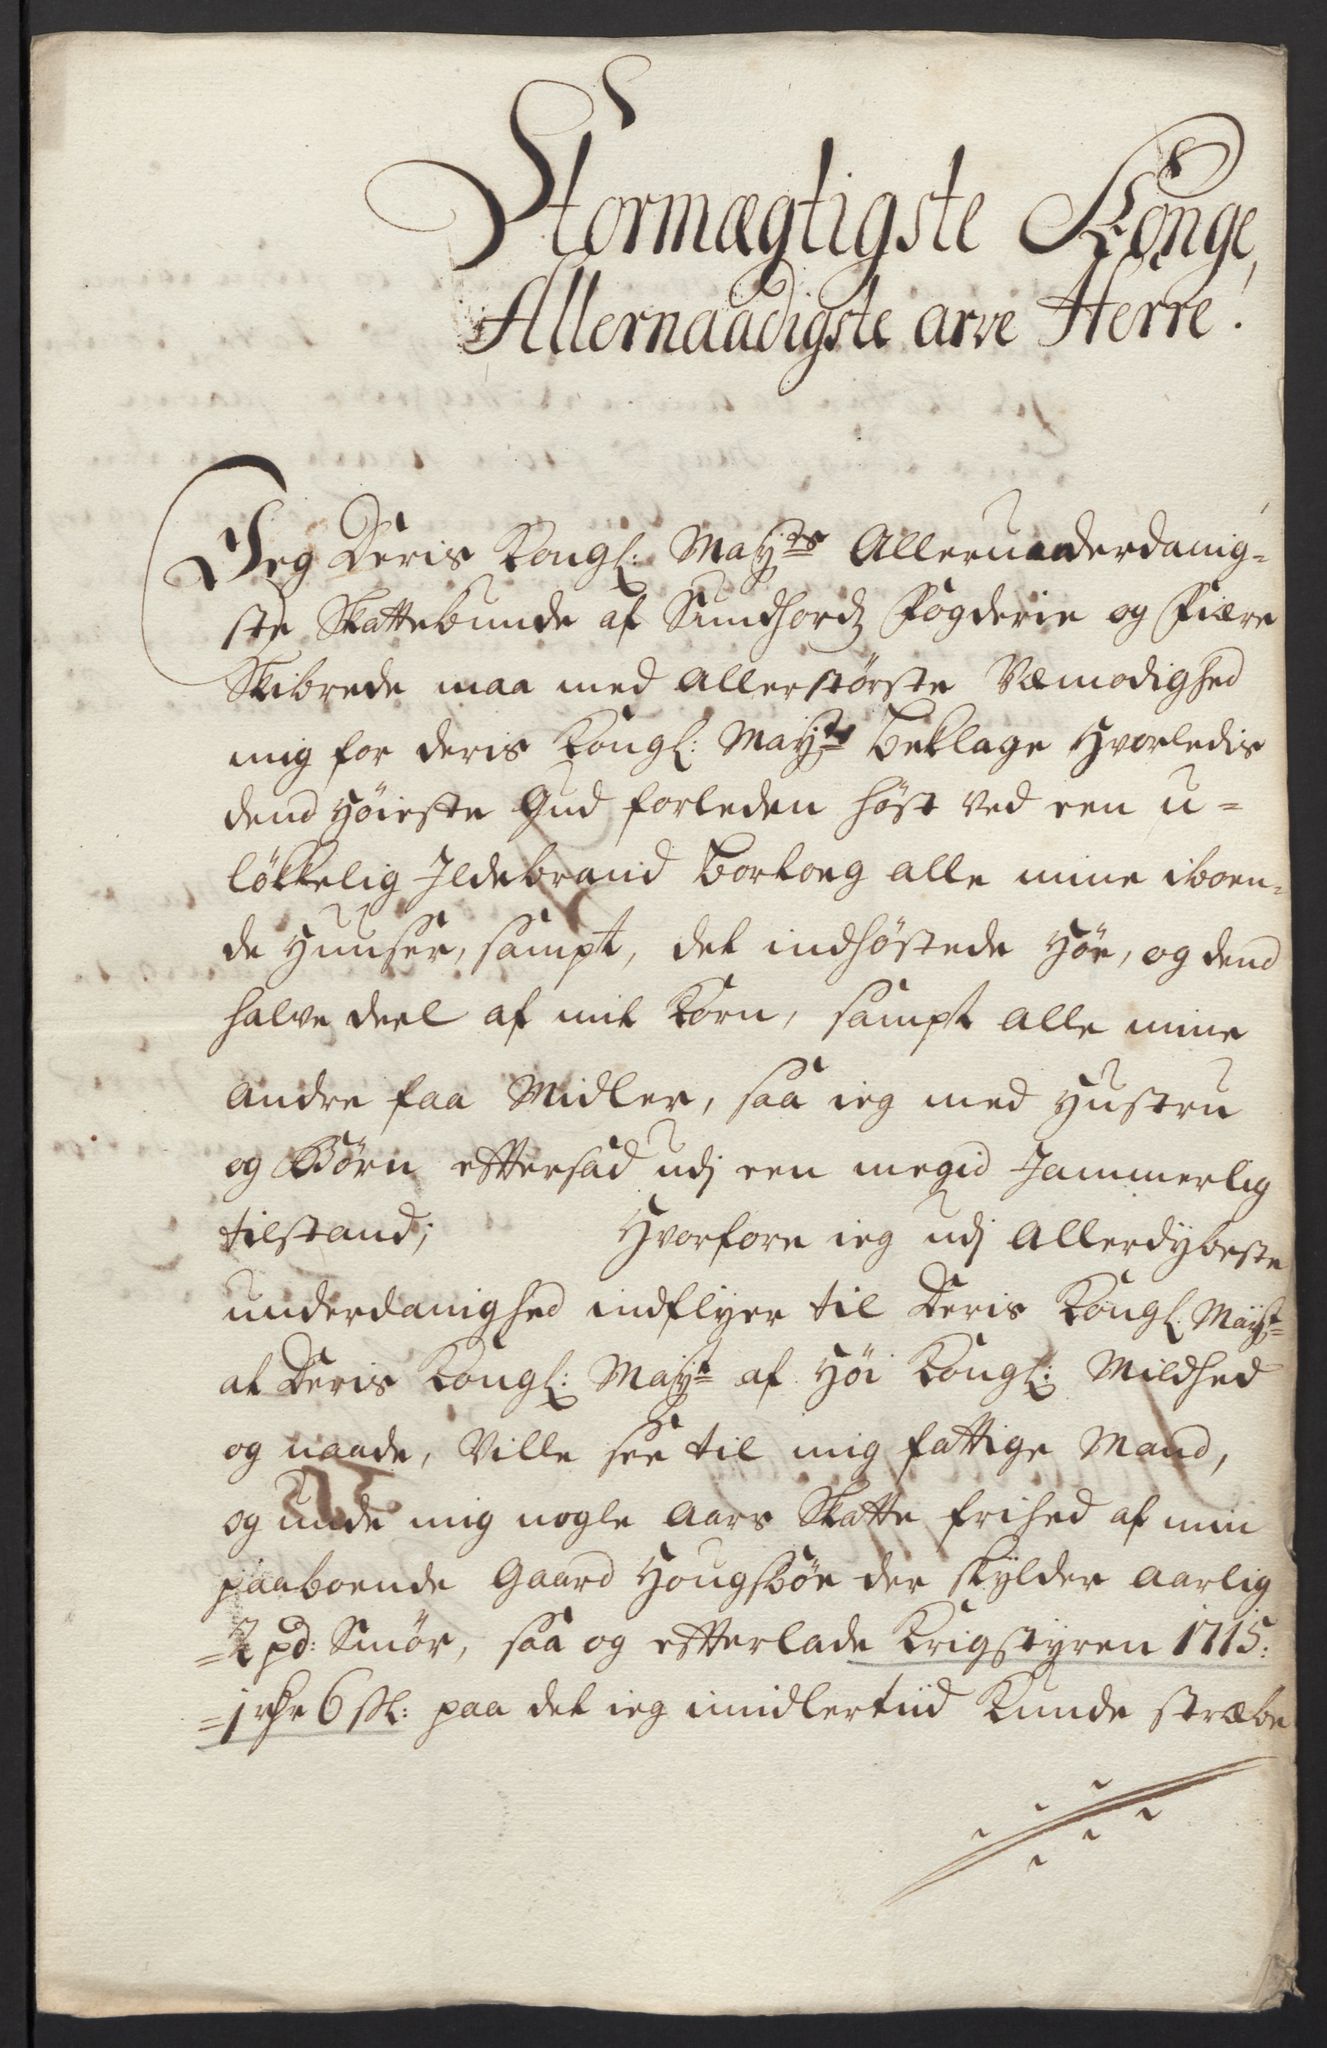 Stormægtigste Konge,
Allernaadigste arve Herre!
Jeg Deris Kongl: Mayts Allerunderdanig=
ste Skattebunde af Sundhordz Fogderie og Fiære
Skibrede maa med allerstörste Væmodighed
mig for deris Kongl: Mayts beklage hvorledis
dend höieste Gud forleden höst ved een u=
lökkelig Ildebrand bortoeg alle mine iboen=
de huuser, sampt, det indhöstede höe, og dend
halve deel af mit Korn, sampt alle mine
andre faa Midler, saa ieg med hustru
og Börn eftersad udj een megid Jammerlig
tilstand; Hvorfore ieg udj allerdybeste
underdanighed indflyer til Deris Kongl: Mayt
at Deris Kongl: Mayt af höi Kongl: Mildhed
og naade, Ville see til mig fattige Mand,
og unde mig nogle aars Skatte frihed af min
paaboende Gaard Hougsböe der skylder aarlig
=2 pd: Smör, saa og efterlade Krigstyren 1715:
=1 rdr 6 sk: paa det ieg imidlertiid Kunde stræbe